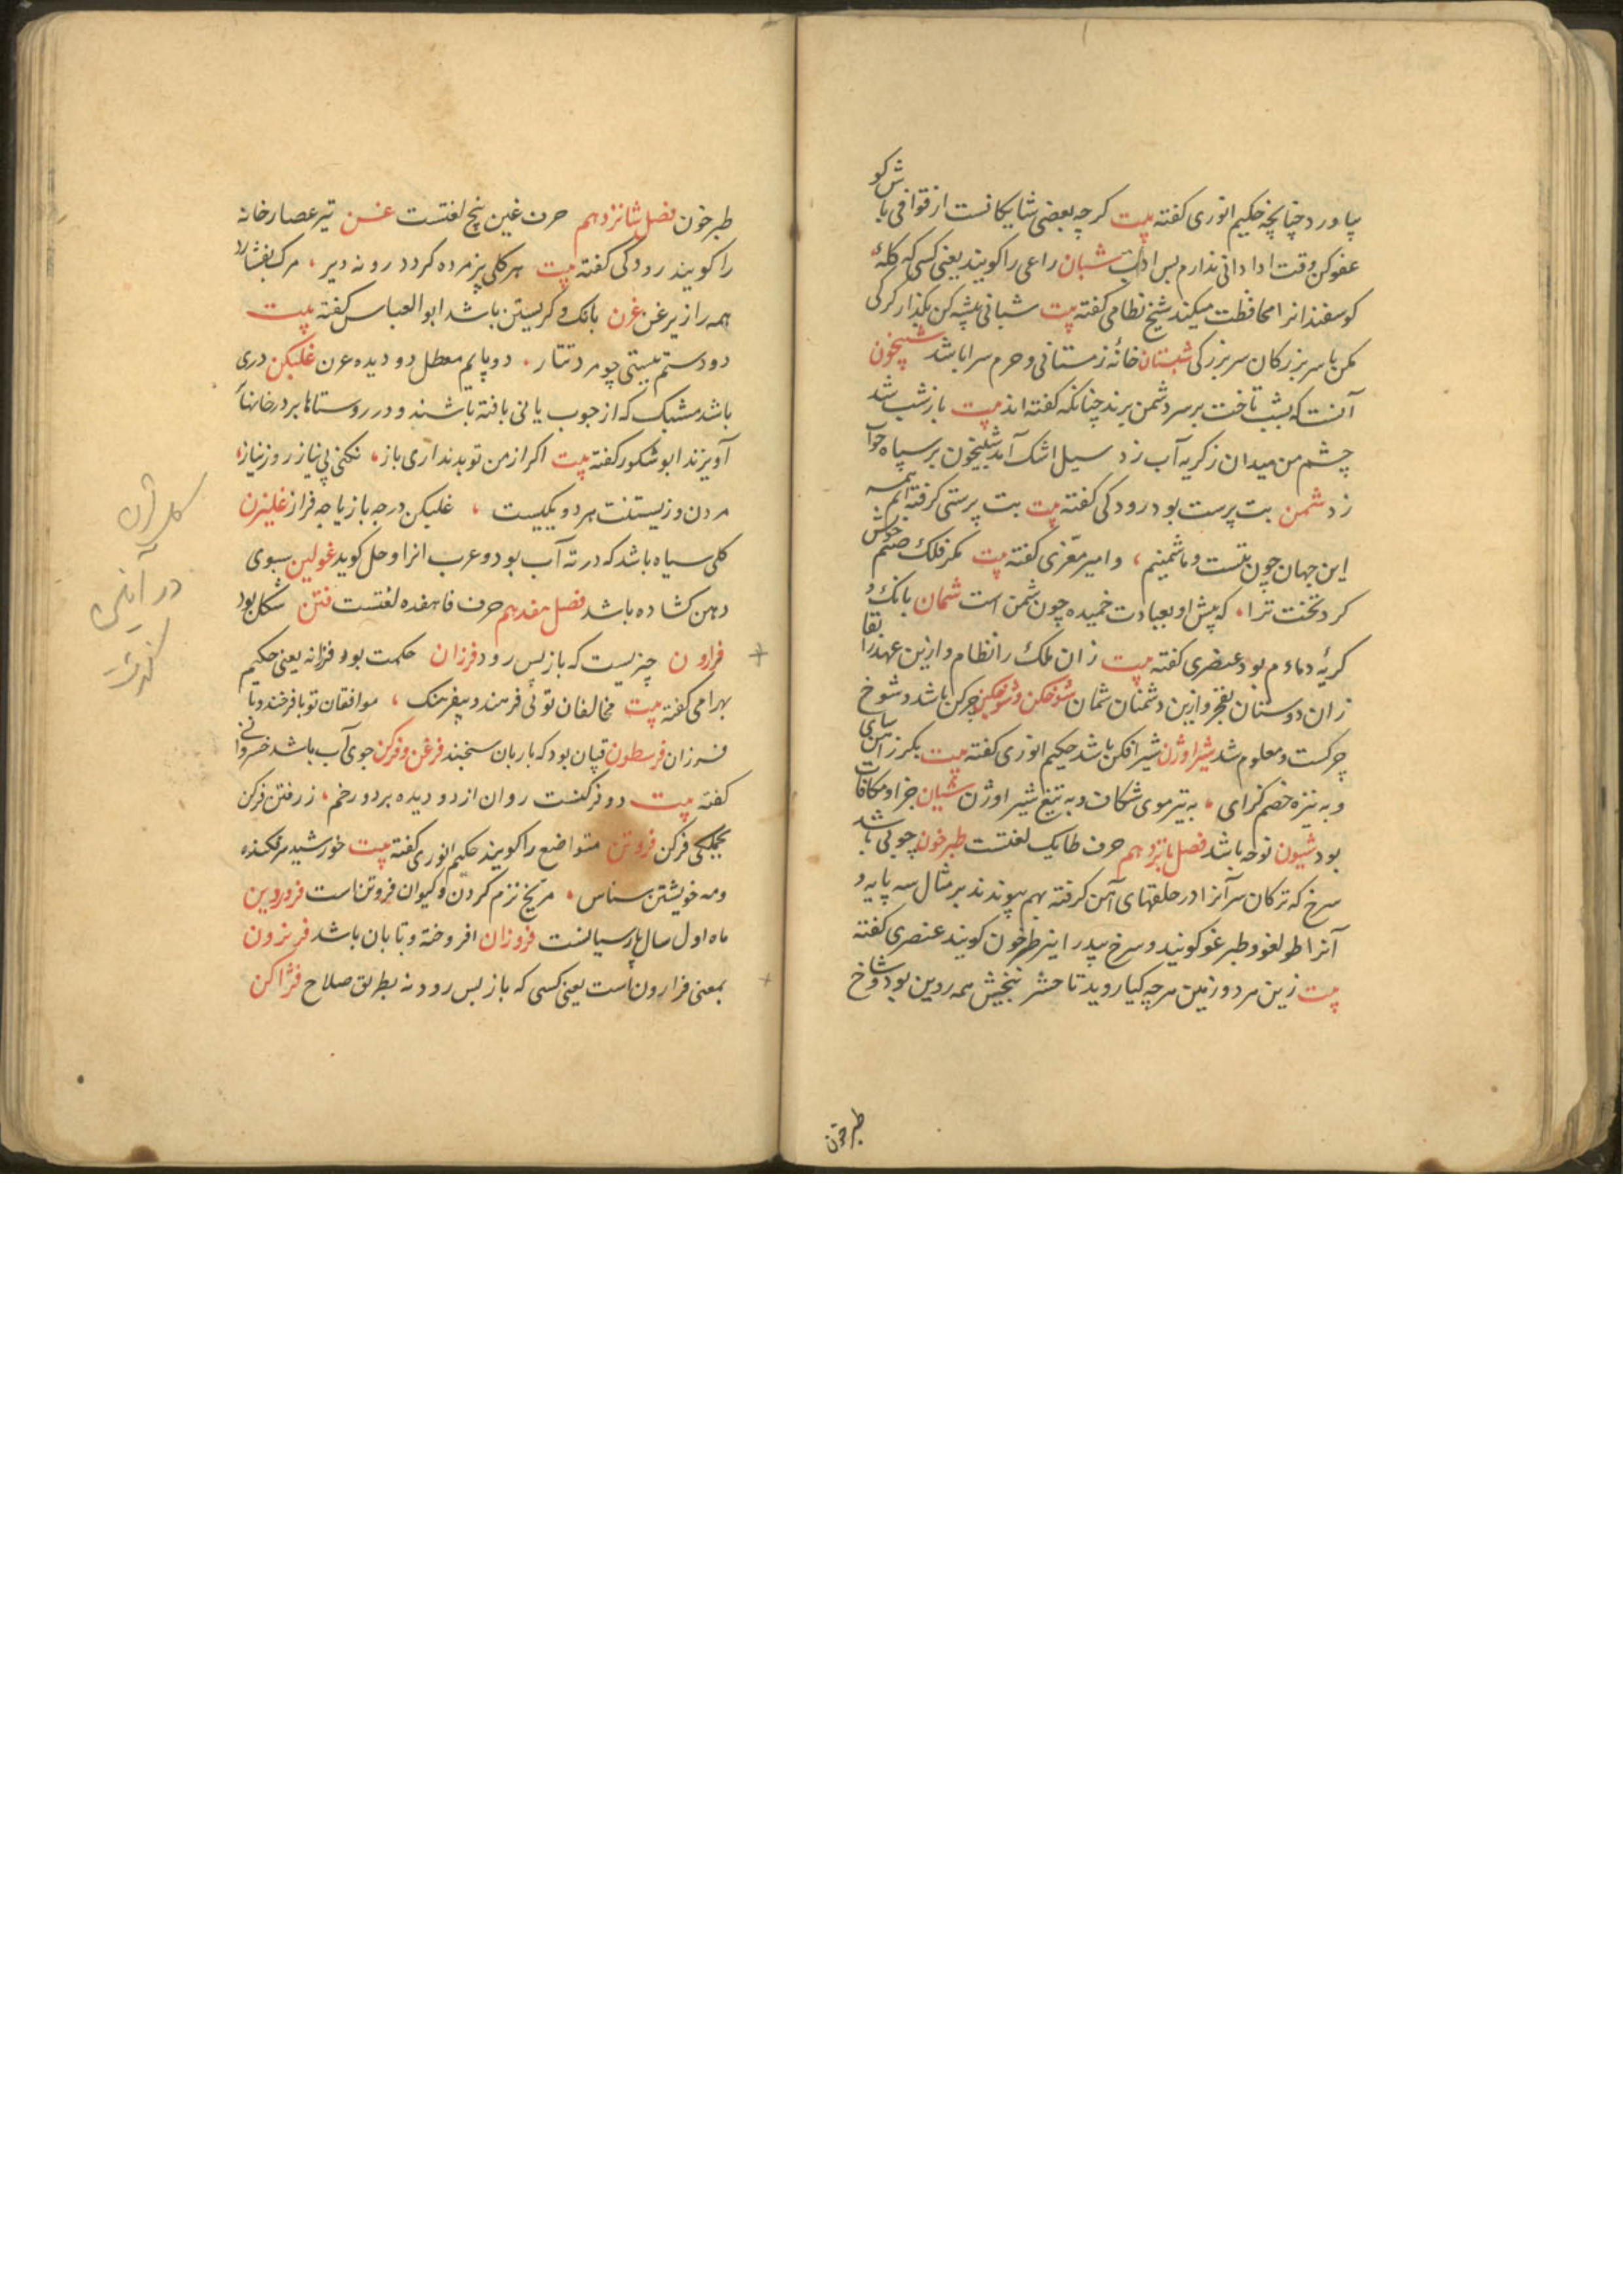 پیاورد چنانچه حکیم انوری کفته بیت کرچه بعضی شایکانست از قوافی باش کو
عفو کن وقت ادا دانی ندارم بس ادات شبان راعی را کویند یعنی کسی که کلهٔ
کوسفندانرا محافظت میکند شیخ نظامی کفته بیت شبانی پیشه کن بکذار کرکی
مکن با سربزرکان سربزرکی شبستان خانهٔ زمستانی و حرم سرا باشد شبیخون
آنست که بشب تاخت بر سر دشمن برند چنانکه کفته اند بیت باز شب شد
چشم من میدان ز کریه آب زد سیل اشک آمد شبیخون بر سپاه خواب
زد شمن بت پرست بود رودکی کفته بیت بت پرستی کرفته ایم همه
این جهان چون بتست و ما شمنیم، و امیر معزی کفته بیت مکر فلک صنم خویش
کرد تخت ترا، که پیش او بعبادت خمیده چون شمن است شمان بانک و
کریهٔ دمادم بود عنصری کفته بیت زان ملک را نظام و ازین عهد را بقا
زان دوستان بفخر و ازین دشمنان شمان شوخکن و شوخکین چرکن باشد و شوخ
چرکست و معلوم شد شیر اوژن شیر افکن باشد حکیم انوری کفته بیت بکرز
و به نیزه خصم کرای، به تیر موی شکاف و به تیغ شیر اوژن شیان جزا و مکافات
بود شیون نوحه باشد فصل پانزدهم حرف طا یک لغتست طبرخون چوبی باشد
سرخ که ترکان سر آنرا در حلقهای آهن کرفته بهم پیوندند بر مثال سه پایه و
آنرا طولغو و طبرغو کویند و سرخ بید را نیز طبرخون کویند عنصری کفته
بیت زین مرد و زمین هرچه کیا روید تا حشر بیخش همه روین بود و شاخ
طبرخون
طبرخون فصل شانزدهم حرف غین پنج لغتست غن تیر عصارخانه
را کویند رودکی کفته بیت هر کلی پژمرده کردد رو نه دیر، مرک بفشارد
همه را زیر غن غرن بانک و کریستن باشد ابو العباس کفته بیت
دو دستم بسستی چو مرد تتار، دو پایم معطل دو دیده غرن غلبکن دری
باشد مشبک که از چوب یا نی بافته باشند و در روستاها بر در خانها
آویزند ابو شکور کفته بیت اکر از من تو بد نداری باز، نکنی بی نیاز روز نیاز،
مردن و زیستنت هر دو یکیست، غلبکن در چه باز یا چه فراز غلیزن
کلی سیاه باشد که در ته آب بود و عرب انرا وحل کوید غولین سبوی
دهن کشاده باشد فصل هفدهم حرف فا هفده لغتست فتن شکل بود
فرارون چیزیست که باز پس رود فرزان حکمت بود و فرزانه یعنی حکیم
بهرامی کفته بیت مخالفان تو بی فرهند و بیفرهنک، موافقان تو با فرخند و با
فرزان فرسطون قپان بود که بار بان سنجند فرغن و فرکن جوی آب باشد خسروانی
کفته بیت دو فرکنست روان از دو دیده بر دو رخم، ز رفتن فرکن
بجملکی فرکن فروتن متواضع را کویند حکیم انوری کفته بیت خورشید سرفکنده
و مه خویشتن سناس، مریخ نرم کردن و کیوان فروتن است فروردین
ماه اول سال پارسیانست فروزان افروخته و تابان باشد فریرون
بمعنی فرارون است یعنی کسی که باز پس رود نه بطریق صلاح فژاکن